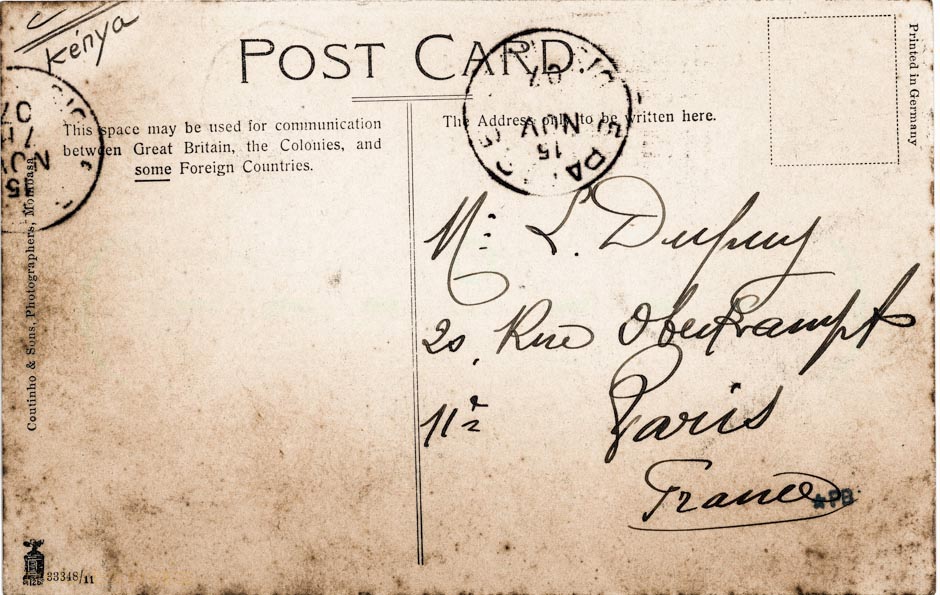 Kénya
POST CARD.
This space may be used for communication
between Great Britain, the Colonies, and
some Foreign Countries.
The Address only to be written here.
Printed in Germany
Coutinho & Sons, Photographers, Mombasa
15
NOV
07
PA
15
NOV
07
Mr L. Dupuy
20, Rue Oberkampf
11e Paris
France
PB
33348/11